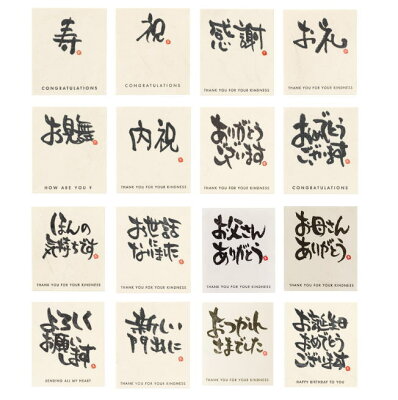 寿
CONGRATULATIONS
祝
CONGRATULATIONS
感謝
THANK YOU FOR YOUR KINDNESS
お礼
THANK YOU FOR YOUR KINDNESS
お見舞
HOW ARE YOU ?
内祝
THANK YOU FOR YOUR KINDNESS
ありがとう
ございます
THANK YOU FOR YOUR KINDNESS
おめでとう
ございます
CONGRATULATIONS
ほんの
気持ちです
THANK YOU FOR YOUR KINDNESS
お世話に
なりました
THANK YOU FOR YOUR KINDNESS
お父さん
ありがとう
THANK YOU FOR YOUR KINDNESS
お母さん
ありがとう
THANK YOU FOR YOUR KINDNESS
よろしく
お願い
します
SENDING ALL MY HEART
新しい
門出に
THANK YOU FOR YOUR KINDNESS
おつかれ
さまでした
THANK YOU FOR YOUR KINDNESS
お誕生日
おめでとう
ございます
HAPPY BIRTHDAY TO YOU